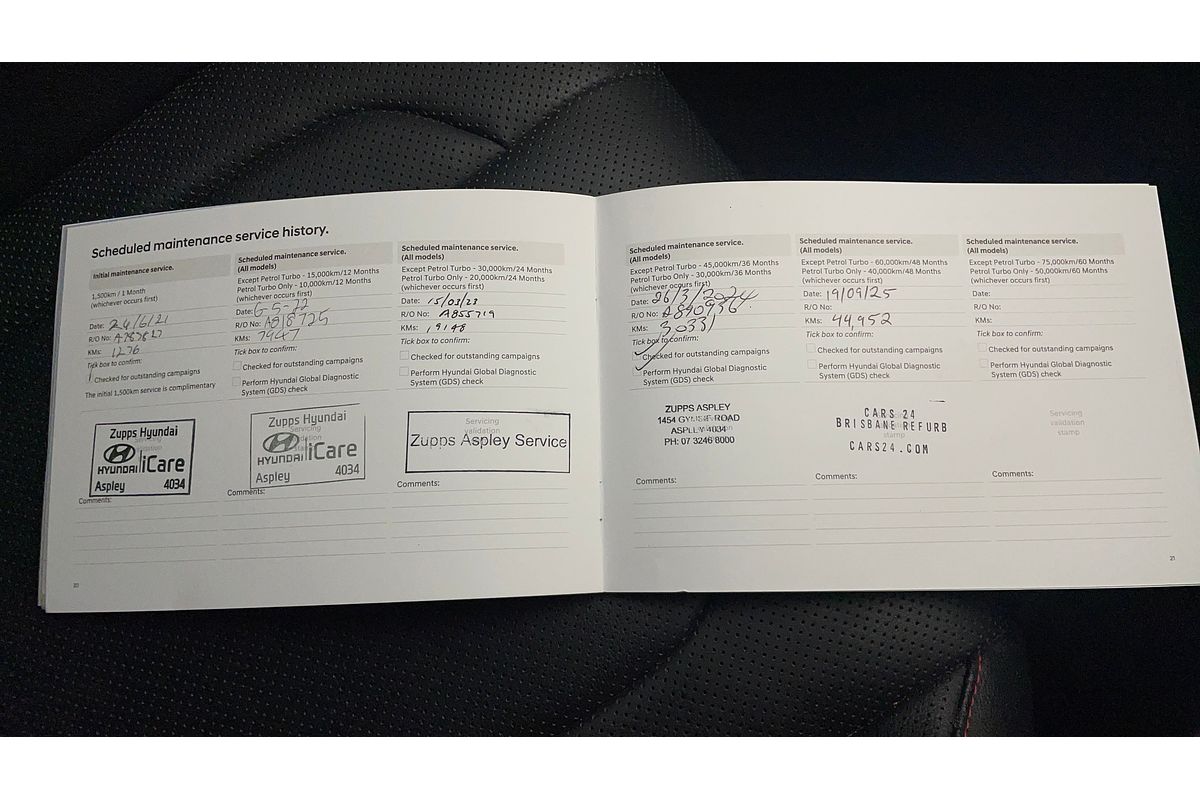 Scheduled maintenance service history.
Initial maintenance service.
1,500km / 1 Month
(whichever occurs first)
Date: 24/6/21
R/O No:
KMs: 1276
Tick box to confirm:
Checked for outstanding campaigns
The initial 1,500km service is complimentary
Zupps Hyundai
Servicing
HYUNDAI iCare
Aspley 4034
Comments:
Scheduled maintenance service.
(All models)
Except Petrol Turbo - 15,000km/12 Months
Petrol Turbo Only - 10,000km/12 Months
(whichever occurs first)
Date: 6-5-22
R/O No: A818725
KMs: 7947
Tick box to confirm:
Checked for outstanding campaigns
Perform Hyundai Global Diagnostic
System (GDS) check
Zupps Hyundai
Servicing
HYUNDAI iCare
Aspley 4034
Comments:
Scheduled maintenance service.
(All models)
Except Petrol Turbo - 30,000km/24 Months
Petrol Turbo Only - 20,000km/24 Months
(whichever occurs first)
Date: 15/03/23
R/O No: A855719
KMs: 19148
Tick box to confirm:
Checked for outstanding campaigns
Perform Hyundai Global Diagnostic
System (GDS) check
Servicing
validation
Zupps Aspley Service
Comments:
20
Scheduled maintenance service.
(All models)
Except Petrol Turbo - 45,000km/36 Months
Petrol Turbo Only - 30,000km/36 Months
(whichever occurs first)
Date: 26/3/2024
R/O No: A840936
KMs: 30331
Tick box to confirm:
Checked for outstanding campaigns
Perform Hyundai Global Diagnostic
System (GDS) check
ZUPPS ASPLEY
1454 GYMPIE ROAD
ASPLEY 4034
PH: 07 3246 8000
Comments:
Scheduled maintenance service.
(All models)
Except Petrol Turbo - 60,000km/48 Months
Petrol Turbo Only - 40,000km/48 Months
(whichever occurs first)
Date: 19/09/25
R/O No:
KMs: 44,952
Tick box to confirm:
Checked for outstanding campaigns
Perform Hyundai Global Diagnostic
System (GDS) check
CARS 24
BRISBANE REFURB
stamp
CARS24.COM
Comments:
Scheduled maintenance service.
(All models)
Except Petrol Turbo - 75,000km/60 Months
Petrol Turbo Only - 50,000km/60 Months
(whichever occurs first)
Date:
R/O No:
KMs:
Tick box to confirm:
Checked for outstanding campaigns
Perform Hyundai Global Diagnostic
System (GDS) check
Servicing
validation
stamp
Comments:
21